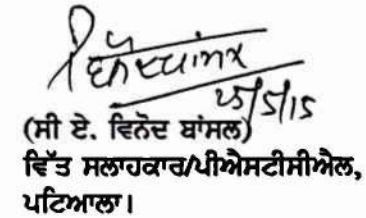 25/5/15
(ਸੀ ਏ. ਵਿਨੋਦ ਬਾਂਸਲ)
ਵਿੱਤ ਸਲਾਹਕਾਰ/ਪੀਐਸਟੀਸੀਐਲ,
ਪਟਿਆਲਾ।